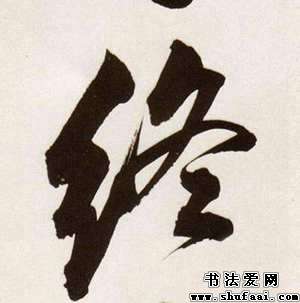 终
书法爱网
www.shufaai.com